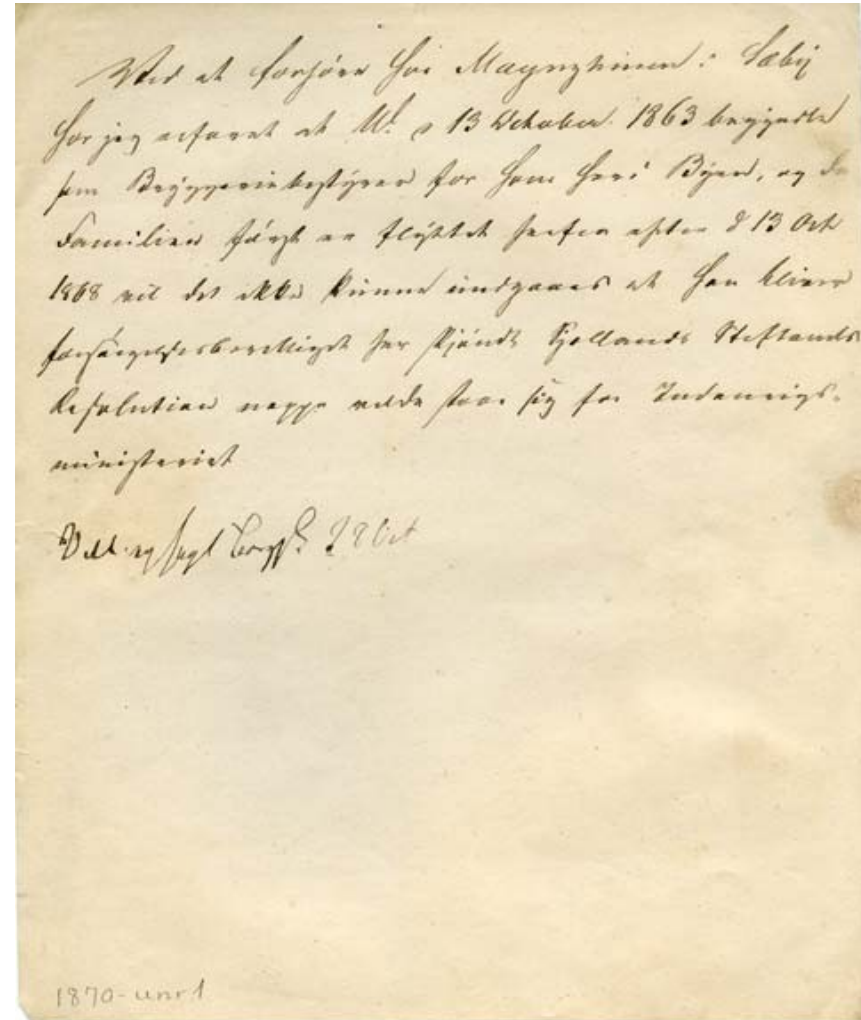 Ved at forhöre hos Magnussen i Sæby
har jeg erfaret at W. d 13 October 1863 begyndte
som Bryggeriebestyrer for ham her i Byen, og da
Familien först er flyttet herfra efter d 13 Oct
1868 vil det ikke kunne undgaaes at han bliver
forsörgelsesberettiget her skjöndt Sjellands Stiftamts
Resolution neppe vilde staae sig for Indenrigs-
ministeriet
og 28 Oct
1870-unr 1